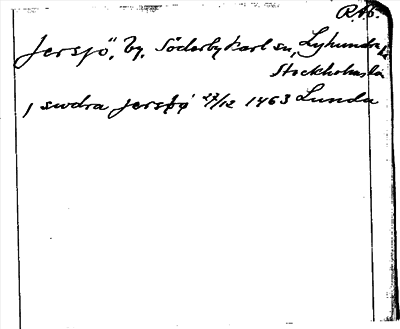 R.A.
Jersjö, by, Söderby Karl sn, Lyhundra
Stockholms län
j swdra jersøø 27/12 1463 Lunda